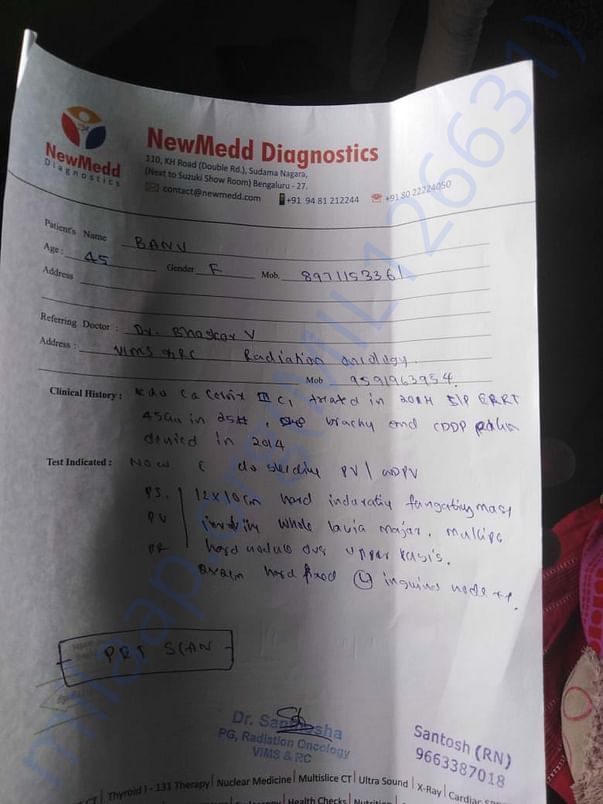 NewMedd Diagnostics
110, KH Road (Double Rd.), Sudama Nagara,
(Next to Suzuki Show Room) Bengaluru - 27.
contact@newmedd.com +91 94 81 212244 +91 80 22224050
NewMedd
Diagnostics
Patient's Name BANU
Age: 45 Gender F Mob. 8971153361
Address
Referring Doctor : Dr. Bhaskar V
Address : VIMS & RC Radiation oncology
Mob 9591963954
Clinical History : Ca Cervix treated in S/P EBRT
45Gy in 25#, brachy and CDDP
denied in 2014
Test Indicated : Now C PV / WDPV
PS. 12 x 10cm hard fungating mass
PV whole labia major. multiple
PR hard nodule over upper
hard fixed inguinal node
PET SCAN
Dr. Santhosha
PG, Radiation Oncology
VIMS & RC
Santosh (RN)
9663387018
CT Thyroid I - 131 Therapy Nuclear Medicine Multislice CT Ultra Sound X-Ray Cardiac
Health Checks
milaap.org (MIL126631)